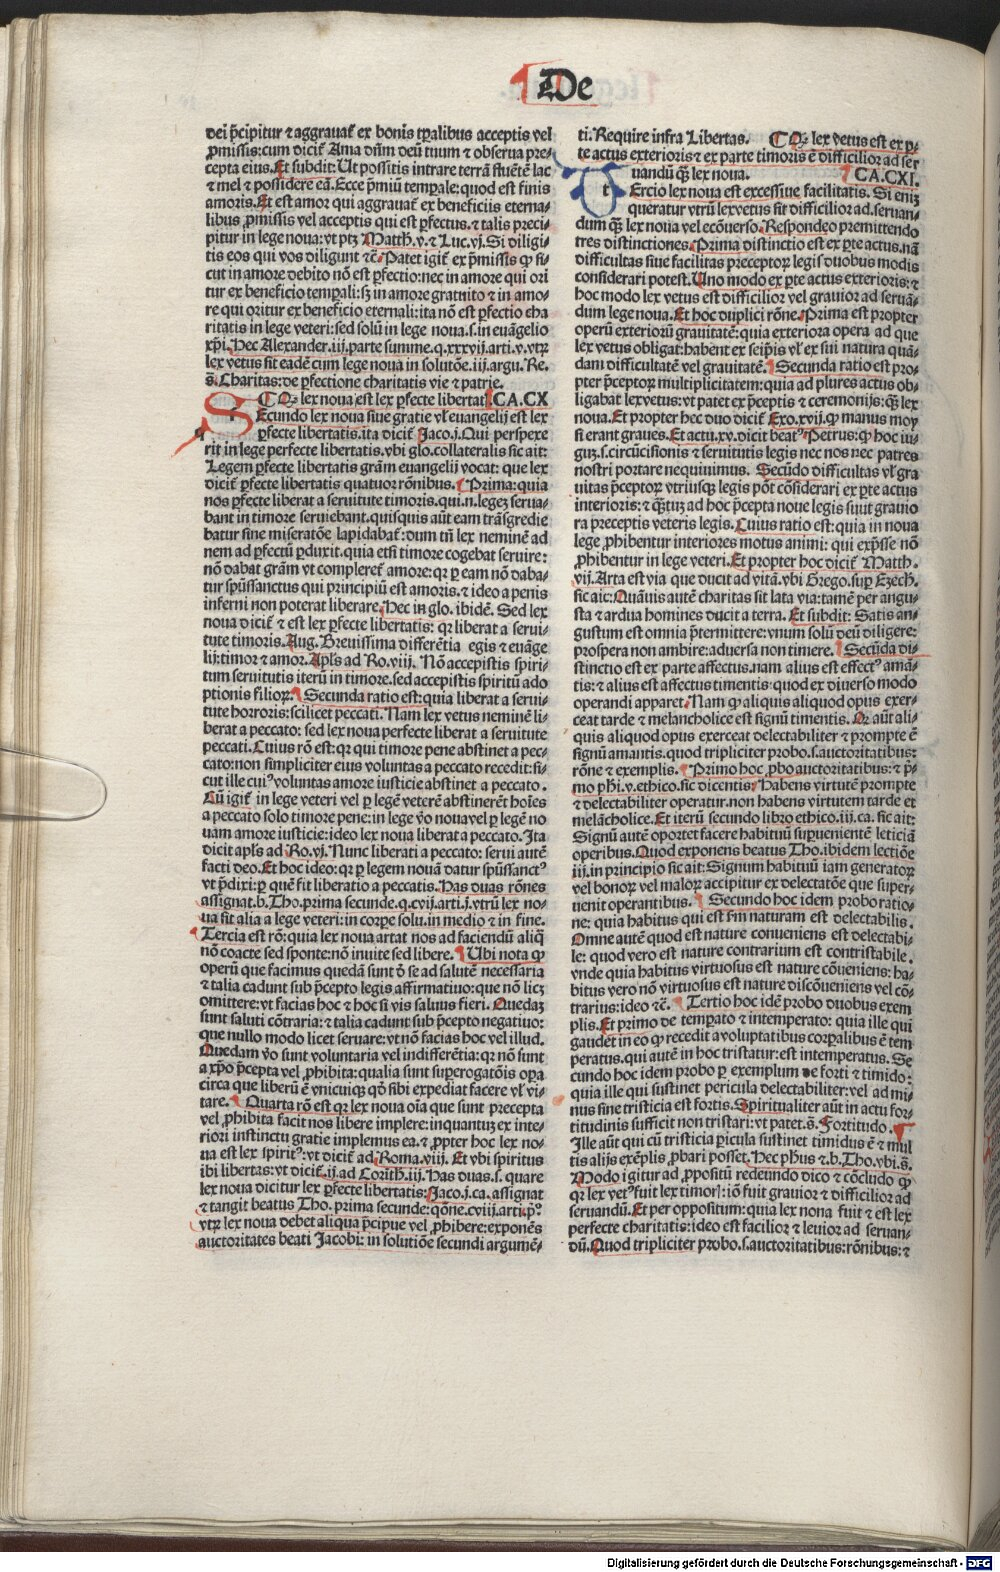 De
dei p̄cipitur ⁊ aggrauat᷑ ex bonis tp̄alibus acceptis vel
ꝓmissis: cum dicit᷑ Ama dn̄m deū tuum ⁊ obserua pre⸗
cepta eius. Et subdit: Ut possitis intrare terrā fluētē lac
⁊ mel ⁊ possidere eā. Ecce p̄miū tempꝛale: quod est finis
amoris. Et est amor qui aggrauat᷑ ex beneficiis eterna⸗
libus ꝓmissis vel acceptis qui est ꝑfectus. ⁊ talis preci⸗
pitur in lege noua: vt ptꝫ Matth. v. ⁊ Luc. vj. Si diligi⸗
tis eos qui vos diligunt ⁊c̄. Patet igit᷑ ex p̄missis ꝙ si⸗
cut in amore debito nō est ꝑfectio: nec in amore qui ori
tur ex beneficio tempꝛali: sꝫ in amore gratuito ⁊ in amo⸗
re qui oritur ex beneficio eternali: ita nō est ꝑfectio cha
ritatis in lege veteri: sed solū in lege noua. s. in euāgelio
xp̄i. Hec Alexander. iij. parte summe. q. xxxvij. arti. v. vtꝝ
lex vetus sit eadē cum lege noua in solutōe. iii. argu. Re.
s̄. Charitas: de ꝑfectione charitatis vie ⁊ patrie.
¶ Qꝛ lex noua est lex ꝑfecte libertat᷑ CA. CX
SEcundo lex noua siue gratie vl̓ euangelij est lex
ꝑfecte libertatis. ita dicit᷑ Jaco. j. Qui perspexe
rit in lege perfecte libertatis. vbi glo. collateralis sic ait:
Legem ꝑfecte libertatis grām euangelij vocat: que lex
dicit᷑ ꝑfecte libertatis quatuor rōnibus. ¶ Prima: quia
nos ꝑfecte liberat a seruitute timoris. qui. n. legeꝫ serua⸗
bant in timore seruiebant. quisquis aūt eam trāsgredie
batur sine miseratōe lapidabat᷑: dum tn̄ lex neminē ad
nem ad ꝑfectū ꝑduxit. quia etsi timore cogebat seruire:
nō dabat grām vt compleret᷑ amore: qꝛ ꝑ eam nō daba⸗
tur spūssanctus qui principiū est amoris. ⁊ ideo a penis
inferni non poterat liberare. Hec in glo. ibidē. Sed lex
noua dicit᷑ ⁊ est lex ꝑfecte libertatis: qꝛ liberat a serui⸗
tute timoris. Aug. Breuissima differētia egis ⁊ euāge
lij: timor ⁊ amor. Apl̓s ad Ro. viii. Nō accepistis spiri⸗
tum seruitutis iterū in timore. sed accepistis spiritū ado
ptionis filioꝝ. ¶ Secunda ratio est: quia liberat a serui⸗
tute horroris: scilicet peccati. Nam lex vetus neminē li⸗
berat a peccato: sed lex noua perfecte liberat a seruitute
peccati. Cuius rō est: qꝛ qui timore pene abstinet a pec⸗
cato: non simpliciter eius voluntas a peccato recedit: si⸗
cut ille cuiꝰ voluntas amore iusticie abstinet a peccato.
Cū igit᷑ in lege veteri vel ꝑ legē veterē abstinerēt hoīes
a peccato solo timore pene: in lege v̓o noua vel ꝑ legē no
uam amore iusticie: ideo lex noua liberat a peccato. Ita
dicit apl̓s ad Ro. vj. Nunc liberati a peccato: serui autē
facti deo. Et hoc ideo: qꝛ ꝑ legem nouā datur spūssanctꝰ
vt p̄dixi: ꝑ quē fit liberatio a peccatis. Has duas rōnes
assignat. b. Tho. prima secunde. q. cvij. arti. j. vtrū lex no⸗
ua sit alia a lege veteri: in corpe solu. in medio ⁊ in fine.
Tercia est rō: quia lex noua artat nos ad faciendū aliqͥ
nō coacte sed sponte: nō inuite sed libere. ¶ Ubi nota ꝙ
operū que facimus quedā sunt d̓ se ad salutē necessaria
⁊ talia cadunt sub p̄cepto legis affirmatiuo: que nō licꝫ
omittere: vt facias hoc ⁊ hoc si vis saluus fieri. Quedaꝫ
sunt saluti cōtraria: ⁊ talia cadunt sub p̄cepto negatiuo:
que nullo modo licet seruare: vt nō facias hoc vel illud.
Quedam v̓o sunt voluntaria vel indifferētia: qꝛ nō sunt
a xp̄o p̄cepta vel ꝓhibita: qualia sunt superogatōis opa
circa que liberū ē vnicuiqꝫ qd̓ sibi expediat facere vl̓ vi⸗
tare. ¶ Quarta rō est qꝛ lex noua oīa que sunt precepta
vel ꝓhibita facit nos libere implere: inquantuꝫ ex inte⸗
riori instinctu gratie implemus ea. ⁊ ꝓpter hoc lex no⸗
ua est lex spiritꝰ: vt dicit᷑ ad Roma. viij. Et vbi spiritus
ibi libertas: vt dicit᷑. ij. ad Corīth. iij. Has duas. s. quare
lex noua dicitur lex ꝑfecte libertatis: Jaco. j. ca. assignat
⁊ tangit beatus Tho. prima secunde: qōne. cviij. arti. p̄ꝰ
vtꝝ lex noua debet aliqua p̄cipue vel ꝓhibere: exponēs
auctoritates beati Jacobi: in solutiōe secundi argumē⸗
ti. Require infra Libertas. ¶ Qꝛ lex vetus est ex ꝑ⸗
te actus exterioris ⁊ ex parte timoris ē difficilior ad ser
uandū qꝫ lex noua. ¶ CA. CXI.
TErcio lex noua est excessiue facilitatis. Si eniꝫ
queratur vtrū lex vetus sit difficilior ad. seruan⸗
dum qꝫ lex noua vel ecōuerso. Respondeo premittendo
tres distinctiones. Prima distinctio est ex ꝑte actus. nā
difficultas siue facilitas preceptoꝝ legis duobus modis
considerari potest. Uno modo ex ꝑte actus exterioris: ⁊
hoc modo lex vetus est difficilior vel grauior ad seruā⸗
dum lege noua. Et hoc duplici rōne. Prima est propter
operū exterioꝝ grauitatē: quia exteriora opera ad que
lex vetus obligat: habent ex seip̄is vl̓ ex sui natura quā⸗
dam difficultatē vel grauitatē. ¶ Secunda ratio est pro⸗
pter p̄ceptoꝝ multiplicitatem: quia ad plures actus ob⸗
ligabat lex vetus: vt patet ex p̄ceptis ⁊ ceremonijs: qꝫ lex
noua. Et propter hec duo dicit᷑ Exo. xvij. ꝙ manus moy
si erant graues. Et actu. xv. dicit beatꝰ Petrus: ꝙ hoc iu⸗
guꝫ. s. circūcisionis ⁊ seruitutis legis nec nos nec patres
nostri portare nequiuimus. Secūdo difficultas vl̓ gra
uitas p̄ceptoꝝ vtriusqꝫ legis pōt cōsiderari ex ꝑte actus
interioris: ⁊ qꝫtuꝫ ad hoc p̄cepta noue legis sunt grauio
ra preceptis veteris legis. Cuius ratio est: quia in noua
lege ꝓhibentur interiores motus animi: qui exp̄sse nō
ꝓhibentur in lege veteri. Et propter hoc dicit᷑ Matth.
vij. Arta est via que ducit ad vitā. vbi Grego. suꝑ Ezech.
sic aīt: Quāuis autē charitas sit lata via: tamē per angu⸗
sta ⁊ ardua homines ducit a terra. Et subdit: Satis an⸗
gustum est omnia p̄termittere: vnum solū deū diligere:
prospera non ambire: aduersa non timere. ¶ Secūda di⸗
stinctio est ex parte affectus. nam alius est effectꝰ amā⸗
tis: ⁊ alius est affectus timentis: quod ex diuerso modo
operandi apparet. Nam ꝙ aliquis aliquod opus exer⸗
ceat tarde ⁊ melancholice est signū timentis. Qꝛ aūt ali⸗
quis aliquod opus exerceat delectabiliter ⁊ prompte ē
signū amantis. quod tripliciter probo. s. auctoritatibus:
rōne ⁊ exemplis. ¶ Primo hoc ꝓbo auctoritatibus: ⁊ p̄⸗
mo ph̓i. v. ethico. sic dicentis: Habens virtutē prompte
⁊ delectabiliter operatur. non habens virtutem tarde et
melācholice. Et iterū secundo libro ethico. iii. ca. sic ait:
Signū autē oportet facere habituū supuenientē leticiā
operibus. Quod exponens beatus Tho. ibidem lectiōe
iij. in principio sic ait: Signum habituū iam generatoꝝ
vel bonoꝝ vel maloꝝ accipitur ex delectatōe que super⸗
uenit operantibus. ¶ Secundo hoc idem probo ratio⸗
ne: quia habitus qui est fm̄ naturam est delectabilis.
Omne autē quod est nature conueniens est delectabi⸗
le: quod vero est nature contrarium est contristabile.
vnde quia habitus virtuosus est nature cōueniens: ha⸗
bitus vero nō virtuosus est nature discōueniens vel cō⸗
trarius: ideo ⁊c̄. ¶ Tertio hoc idē probo duobus exem
plis. Et primo de tempato ⁊ intemperato: quia ille qui
gaudet in eo ꝙ recedit a voluptatibus corꝑalibus ē tem
peratus. qui autē in hoc tristatur: est intemperatus. Se
cundo hoc idem probo ꝑ exemplum de forti ⁊ timido:
quia ille qui sustinet pericula delectabiliter: vel ad mi⸗
nus sine tristicia est fortis. Spiritualiter aūt in actu for⸗
titudinis sufficit non tristari: vt patet. s̄. Fortitudo. ¶
Ille aūt qui cū tristicia ꝑicula sustinet timidus ē ⁊ mul
tis alijs exēplis ꝓbari posset. Hec ph̓us ⁊ b. Tho. vbi. s̄.
Modo igitur ad ꝓpositū redeundo dico ⁊ cōcludo ꝙ
qꝛ lex vetꝰ fuit lex timoꝝ: iō fuit grauior ⁊ difficilior ad
seruandū. Et per oppositum: quia lex noua fuit ⁊ est lex
perfecte charitatis: ideo est facilior ⁊ leuior ad seruan⸗
dū. Quod tripliciter probo. s. auctoritatibus: rōnibus: ⁊
Digitalisierung gefördert durch die Deutsche Forschungsgemeinschaft - DFG